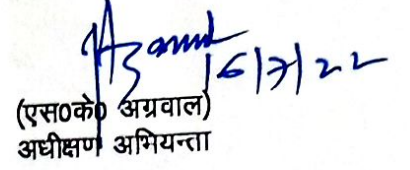 16/7/22
(एस0के0 अग्रवाल)
अधीक्षण अभियन्ता